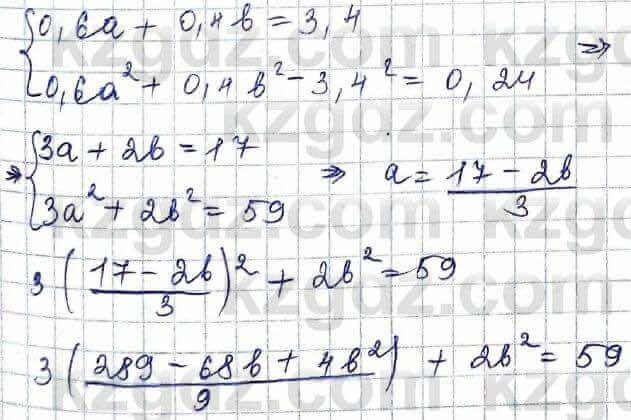 {0,6a + 0,4b = 3,4
{0,6a² + 0,4b² - 3,4² = 0,24 ⇒
⇒ {3a + 2b = 17
{3a² + 2b² = 59 ⇒ a = (17 - 2b)/3
3((17 - 2b)/3)² + 2b² = 59
3((289 - 68b + 4b²)/9) + 2b² = 59
kzgdz.com